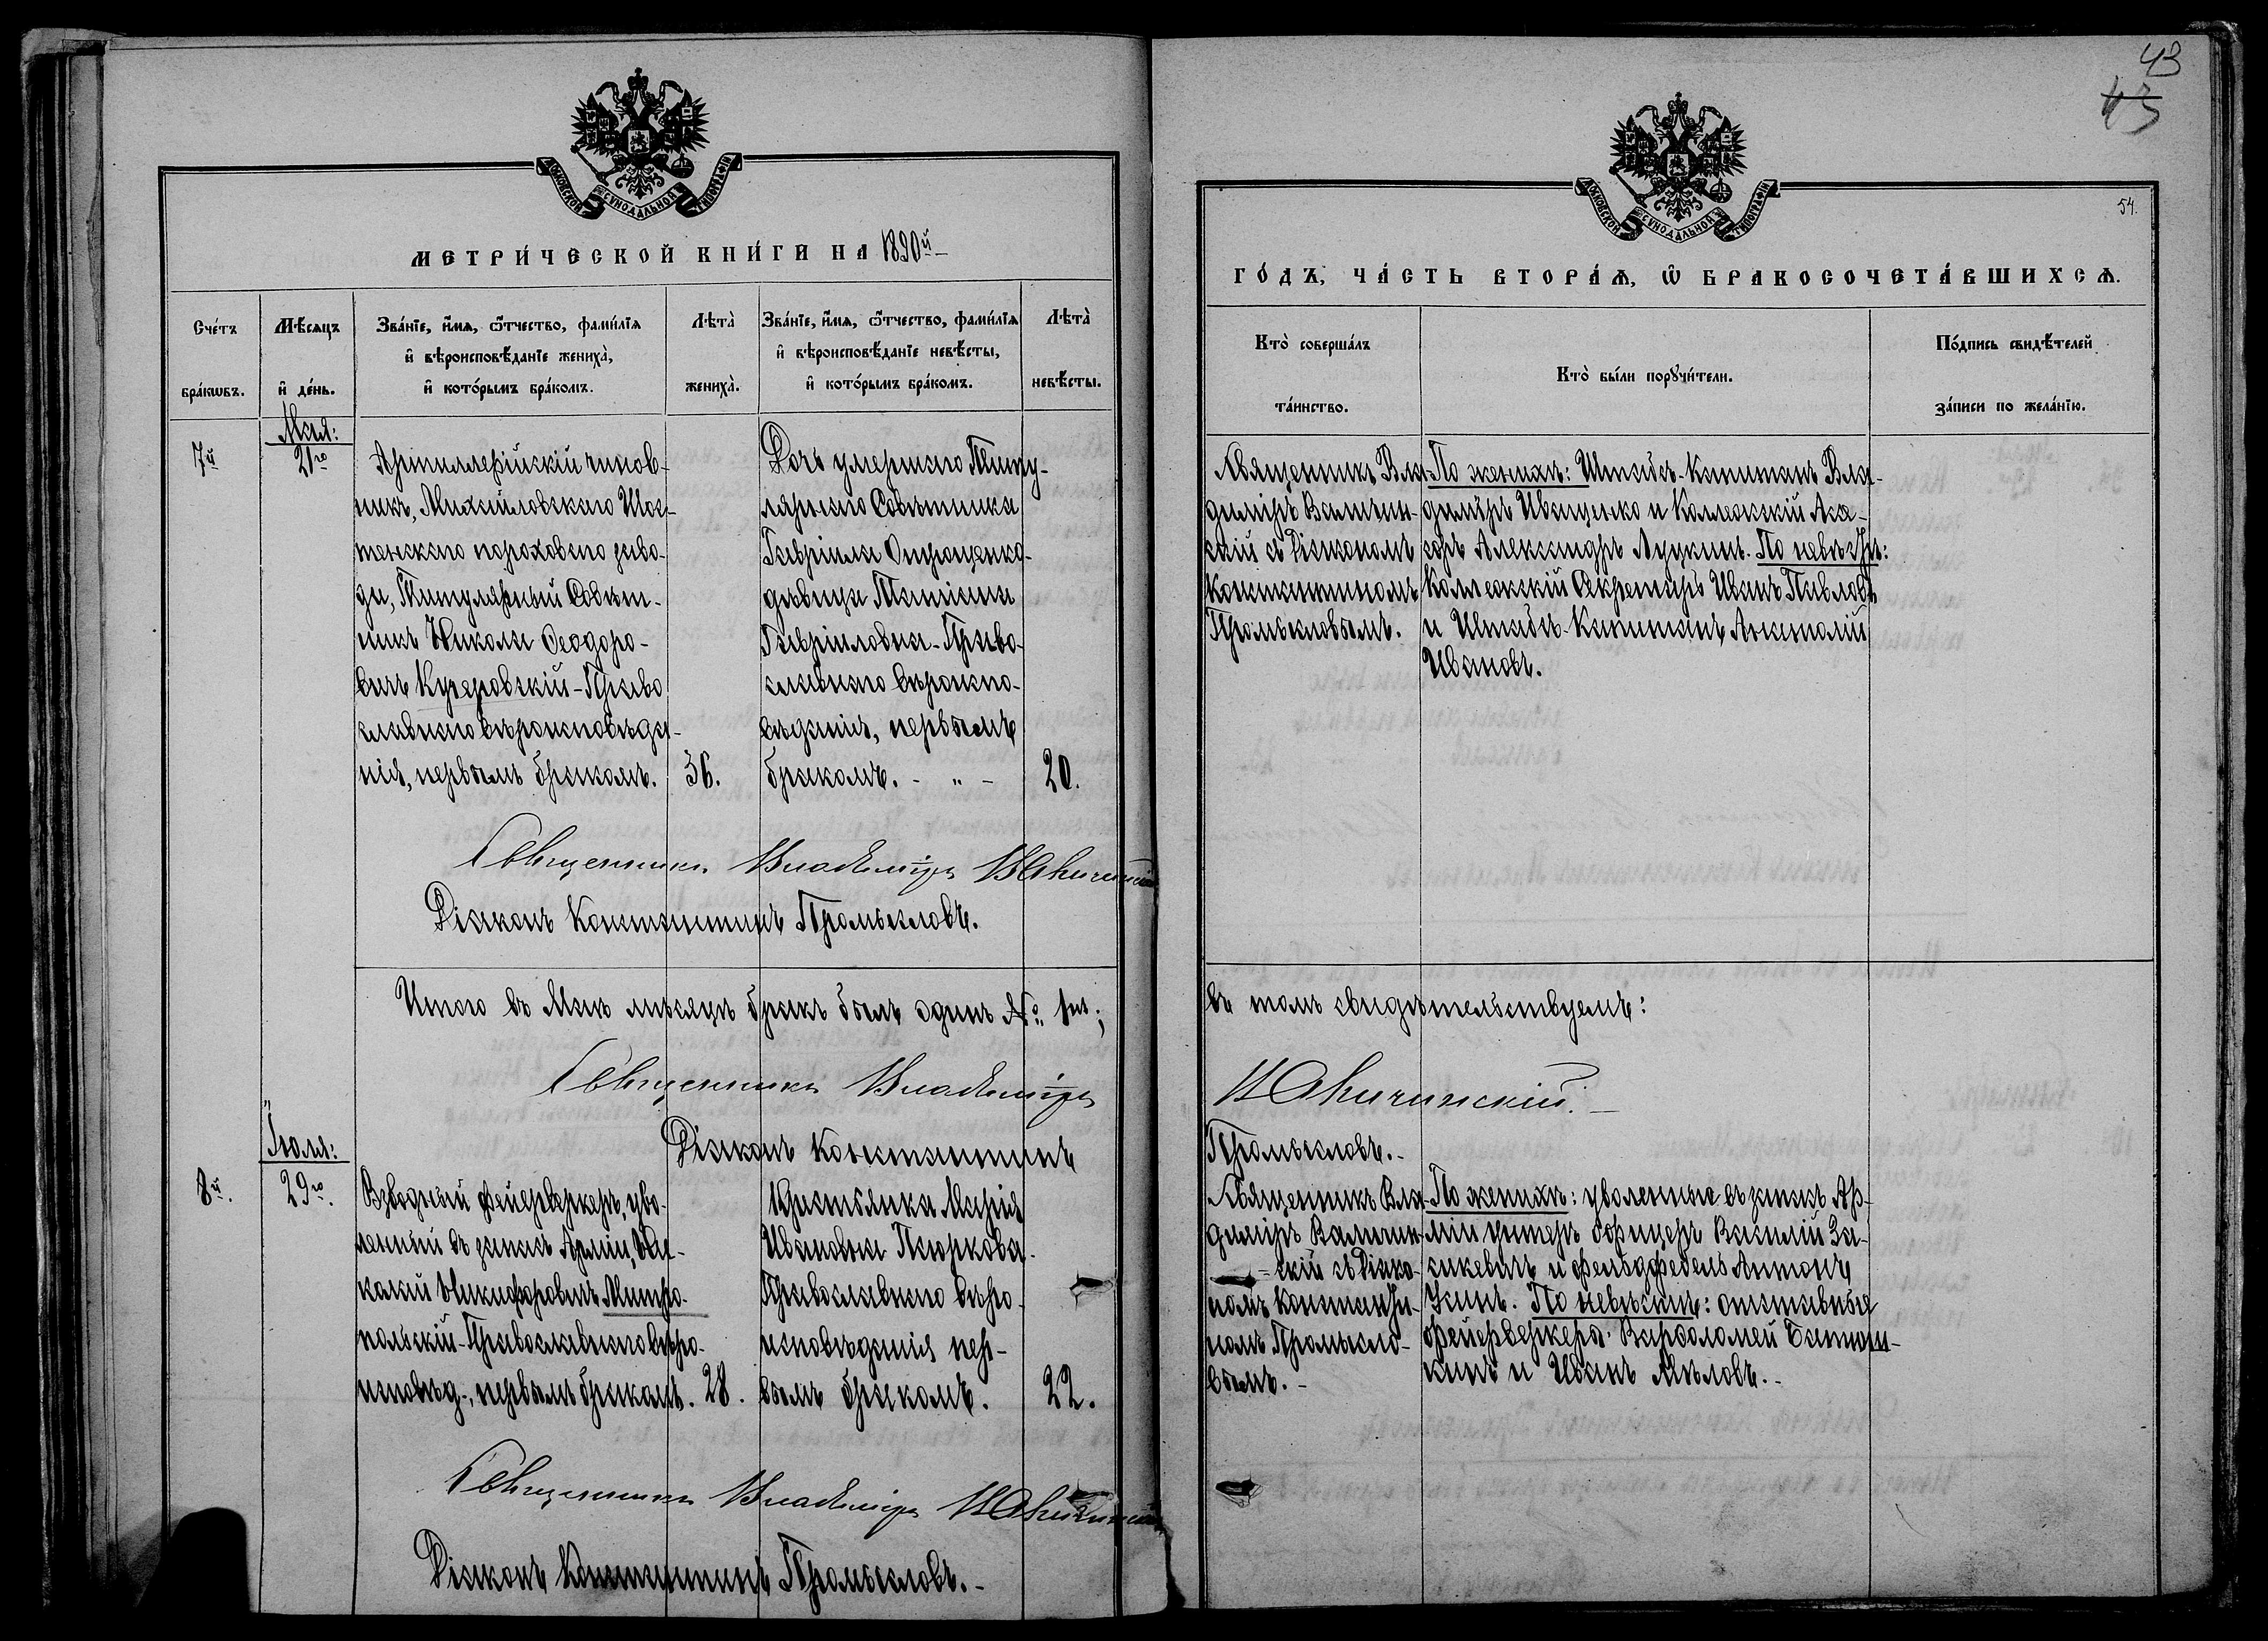 43
43
54.
МОСКОВСКОЙ СУНОДАЛЬНОЙ ТИПОГРАФІИ
МЕТРИ́ЧЕСКОЙ КНИ́ГИ НА 1890й
Сче́тъ бра́кѡвъ.
Мѣ́сяцъ и҆ де́нь.
Зва́нїе, и҆́мя, ѻ҆́тчество, фами́лїя
и҆ вѣроисповѣ́данїе жениха̀,
и҆ кото́рымъ бра́комъ.
Лѣта̀ жениха̀.
Зва́нїе, и҆́мя, ѻ҆́тчество, фами́лїя
и҆ вѣроисповѣ́данїе невѣ́сты,
и҆ кото́рымъ бра́комъ.
Лѣта̀ невѣ́сты.
7й
Мая:
21го
Артиллерійскій чинов-
никъ, Михайловскаго Шос-
тенскаго пороховаго заво-
да, Титулярный Совѣт-
никъ Николай Ѳеодоро-
вичъ Кучеровскій - Право
славнаго вѣроисповѣда-
нія, первымъ бракомъ.
36.
Дочь умершаго Титу-
лярнаго Совѣтника
Гавріила Онрощенко-
дѣвица Таисія
Гавріиловна - Право-
славнаго вѣроиспо-
вѣданія, первымъ
бракомъ. - " -
20.
Священникъ Владиміръ
Діаконъ Константинъ Промысловъ.
Итого въ Маѣ мѣсяцѣ бракъ былъ одинъ №
Священникъ Владиміръ
Діаконъ Константинъ
8й.
Іюля:
29го.
Взводный фейерверкеръ, уво-
ленный въ запасъ Арміи,
Никифоровичъ Митро-
польскій - Православнаго вѣро-
исповѣд., первымъ бракомъ.
28.
Крестьянка Марія
Ивановна Тюркова.
Православнаго вѣро-
исповѣданія пер-
вымъ бракомъ.
22.
Священникъ Владиміръ
Діаконъ Константинъ Промысловъ.-
МОСКОВСКОЙ СУНОДАЛЬНОЙ ТИПОГРАФІИ
ГО́ДЪ, ЧА́СТЬ ВТОРА́Ѧ, Ѡ҆ БРАКОСОЧЕТА́ВШИХСѦ.
Кто̀ соверша́лъ та́инство.
Кто̀ бы́ли порꙋчи́тели.
По́дпись свидѣ́телей за́писи по жела́нїю.
Священникъ Вла-
диміръ
скій съ Діакономъ
Константиномъ
Промысловымъ.
По женихѣ: Штабсъ-Капитанъ Вла-
диміръ Иващенко и Коллежскій Асе-
соръ Александръ Луцкинъ. По невѣстѣ:
Коллежскій Секретарь Иванъ Павловъ
и Штабсъ-Капитанъ Анатолій
Ивановъ.
въ томъ свидѣтельствуемъ:
Промысловъ.-
Священникъ Вла-
диміръ
скій съ Діако-
номъ Константи-
номъ Промысло-
вымъ.-
По женихѣ: уволенные въ запасъ Ар-
міи унтеръ офицеръ Василій За-
сикевичъ и фельдфебель Антонъ
По невѣстѣ: отставные
фейерверкеры: Варѳоломей
кинъ и Иванъ Мѣловъ.-